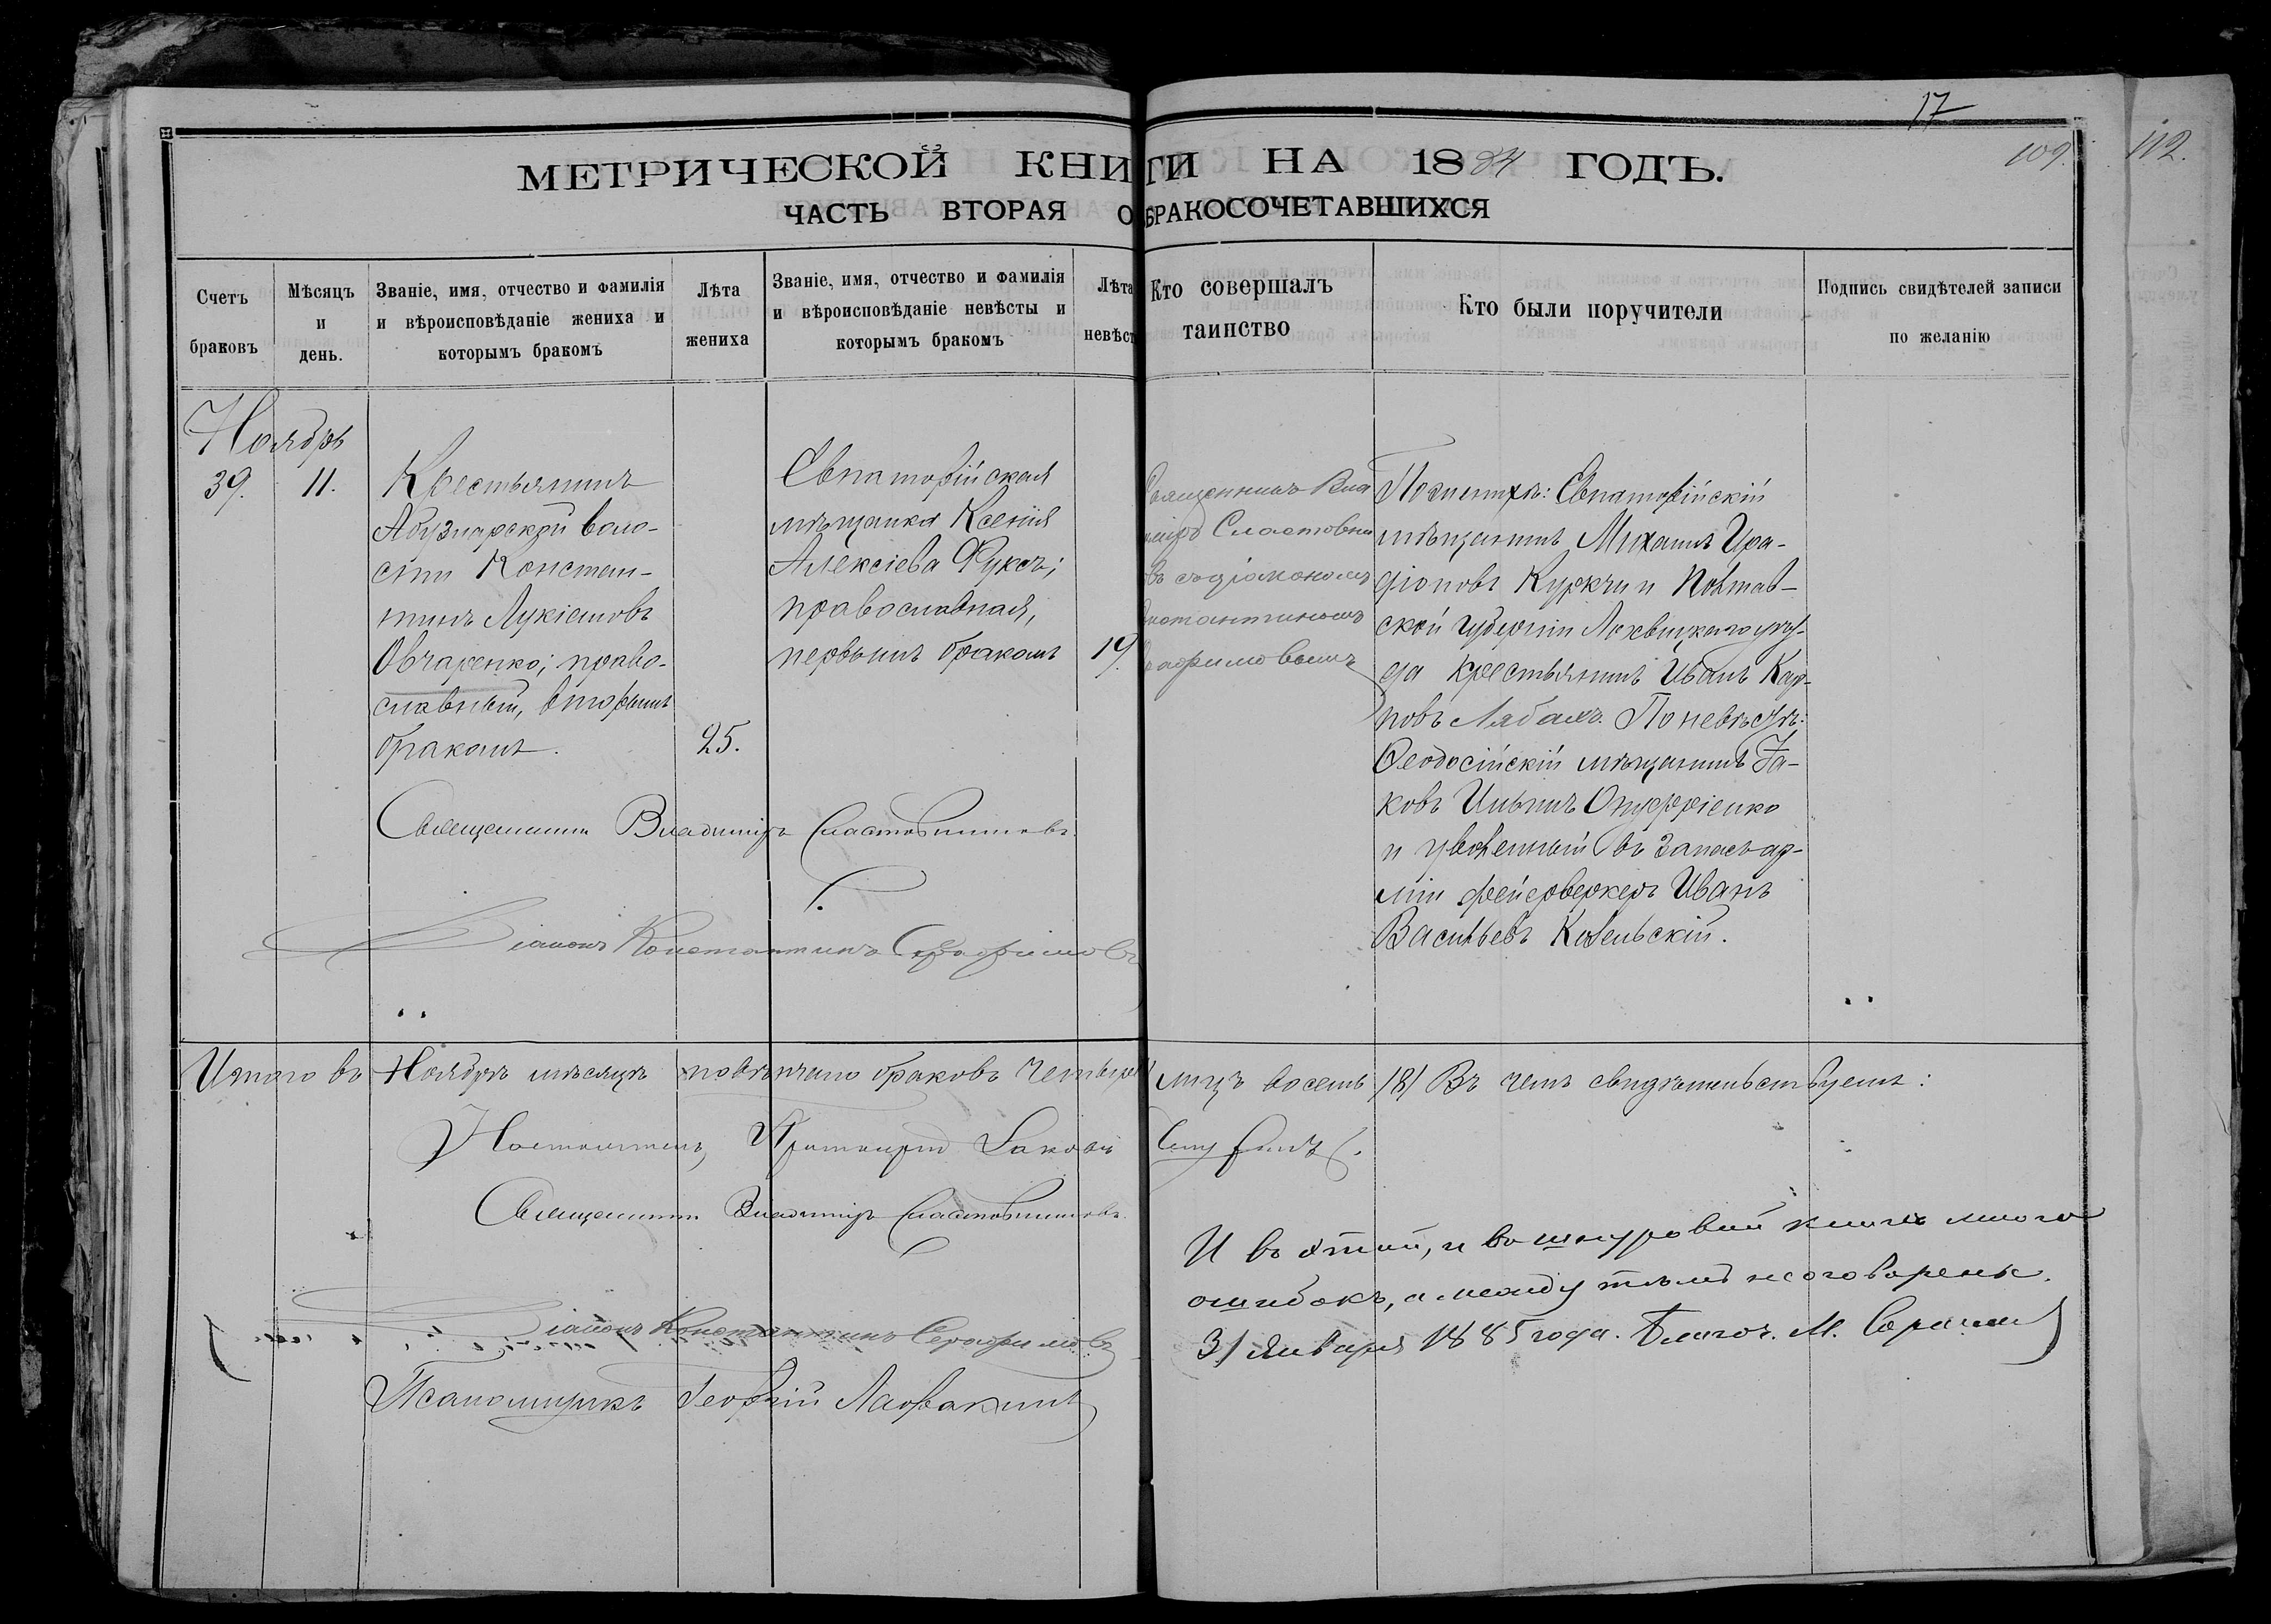 17
109.
112.
МЕТРИЧЕСКОЙ КНИГИ НА 1884 ГОДЪ.
ЧАСТЬ ВТОРАЯ О БРАКОСОЧЕТАВШИХСЯ
Счетъ браковъ
Мѣсяцъ и день.
Званіе, имя, отчество и фамилія и вѣроисповѣданіе жениха и которымъ бракомъ
Лѣта жениха
Званіе, имя, отчество и фамилія и вѣроисповѣданіе невѣсты и которымъ бракомъ
Лѣта невѣст
Кто совершалъ таинство
Кто были поручители
Подпись свидѣтелей записи по желанію
Ноябрь
39. 11.
Крестьянинъ
Абузларской воло-
сти Констан-
тинъ Лукіановъ
Овчаренко; право-
славный, вторымъ
бракомъ.
25.
Евпаторійская
мѣщанка Ксенія
Алексіева Фуксъ;
православная,
первымъ бракомъ
19.
Священникъ Вла
диміръ Сластовни
въ съ діакономъ
Константиномъ
Серафимовымъ
По женихѣ: Евпаторійскій
мѣщанинъ Михаилъ Ира-
діоновъ Куркчи и Полтав-
ской губерніи Лохвицкаго уѣз-
да крестьянинъ Иванъ Кар-
повъ Лябахъ. По невѣстѣ:
Ѳеодосійскій мѣщанинъ Іа-
ковъ Ильинъ Онуффріенко
и уволенный въ запасъ ар-
міи фейерверкеръ Иванъ
Васильевъ Ковельскій.
Священникъ Владиміръ Сластовниковъ
Діаконъ Константинъ Серафимовъ
Итого въ Ноябрѣ мѣсяцѣ повѣнчано браковъ четыре лицъ восемь /8/ Въ чемъ свидѣтельствуемъ:
Настоятель, Протоіерей Іаковъ
Священникъ Владиміръ Сластовниковъ
Діаконъ Константинъ Серафимовъ
Псаломщикъ Георгій Лаовакинъ
И въ этой, и въ шнуровой книгѣ много
ошибокъ, а между тѣмъ не оговорены.
31 Января 1885 года. Благоч. М.